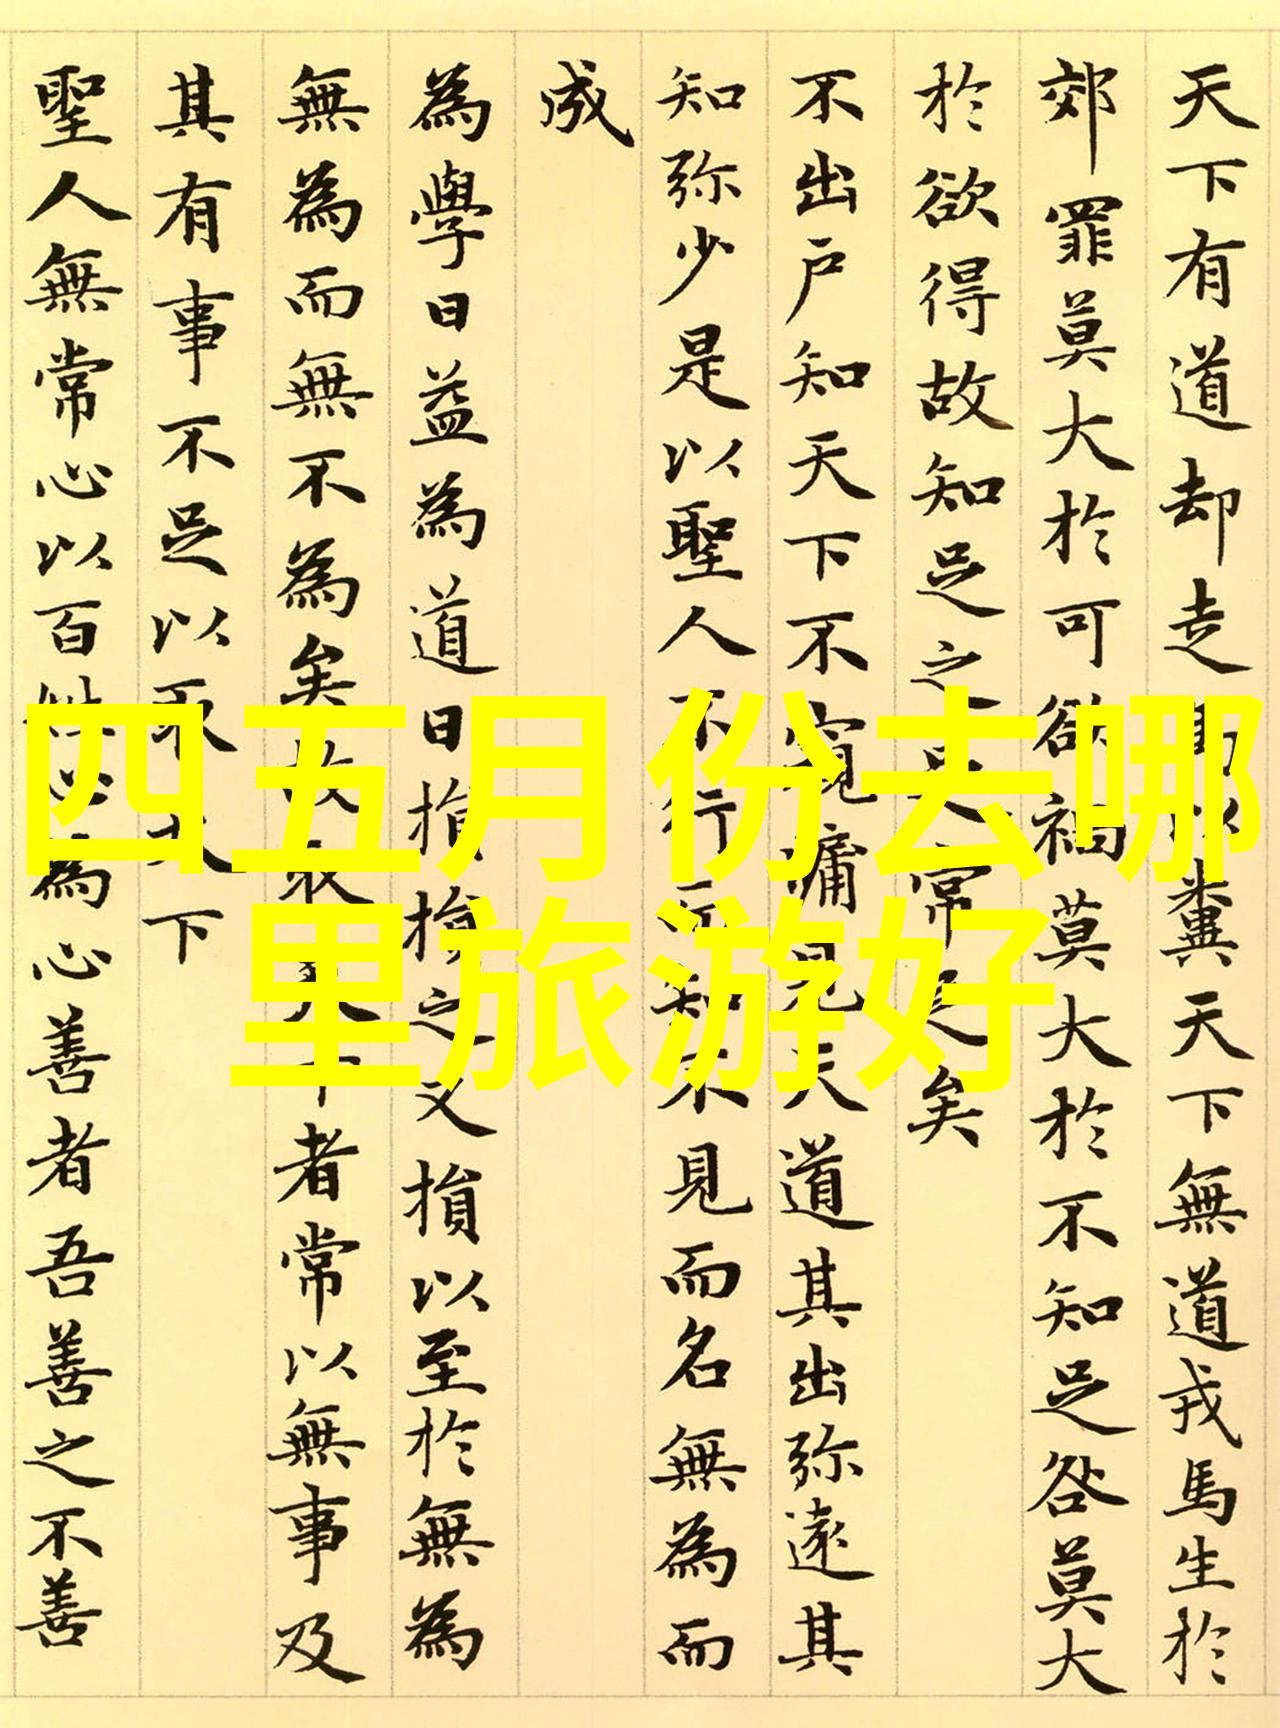 四五月份去哪
里旅游好
天下有道却走馬以糞天下無道戎馬生於
郊罪莫大於可欲禍莫大於不知足咎莫大
於欲得故知足之足常足矣
不出户知天下不窺牖見天道其出弥遠其
知弥少是以聖人不行而知不見而名無為而
成
為學日益為道日損損之又損以至於無為
無為而無不為矣故取天下者常以無事及
其有事不足以取天下
聖人無常心以百姓心為心善者吾善之不善